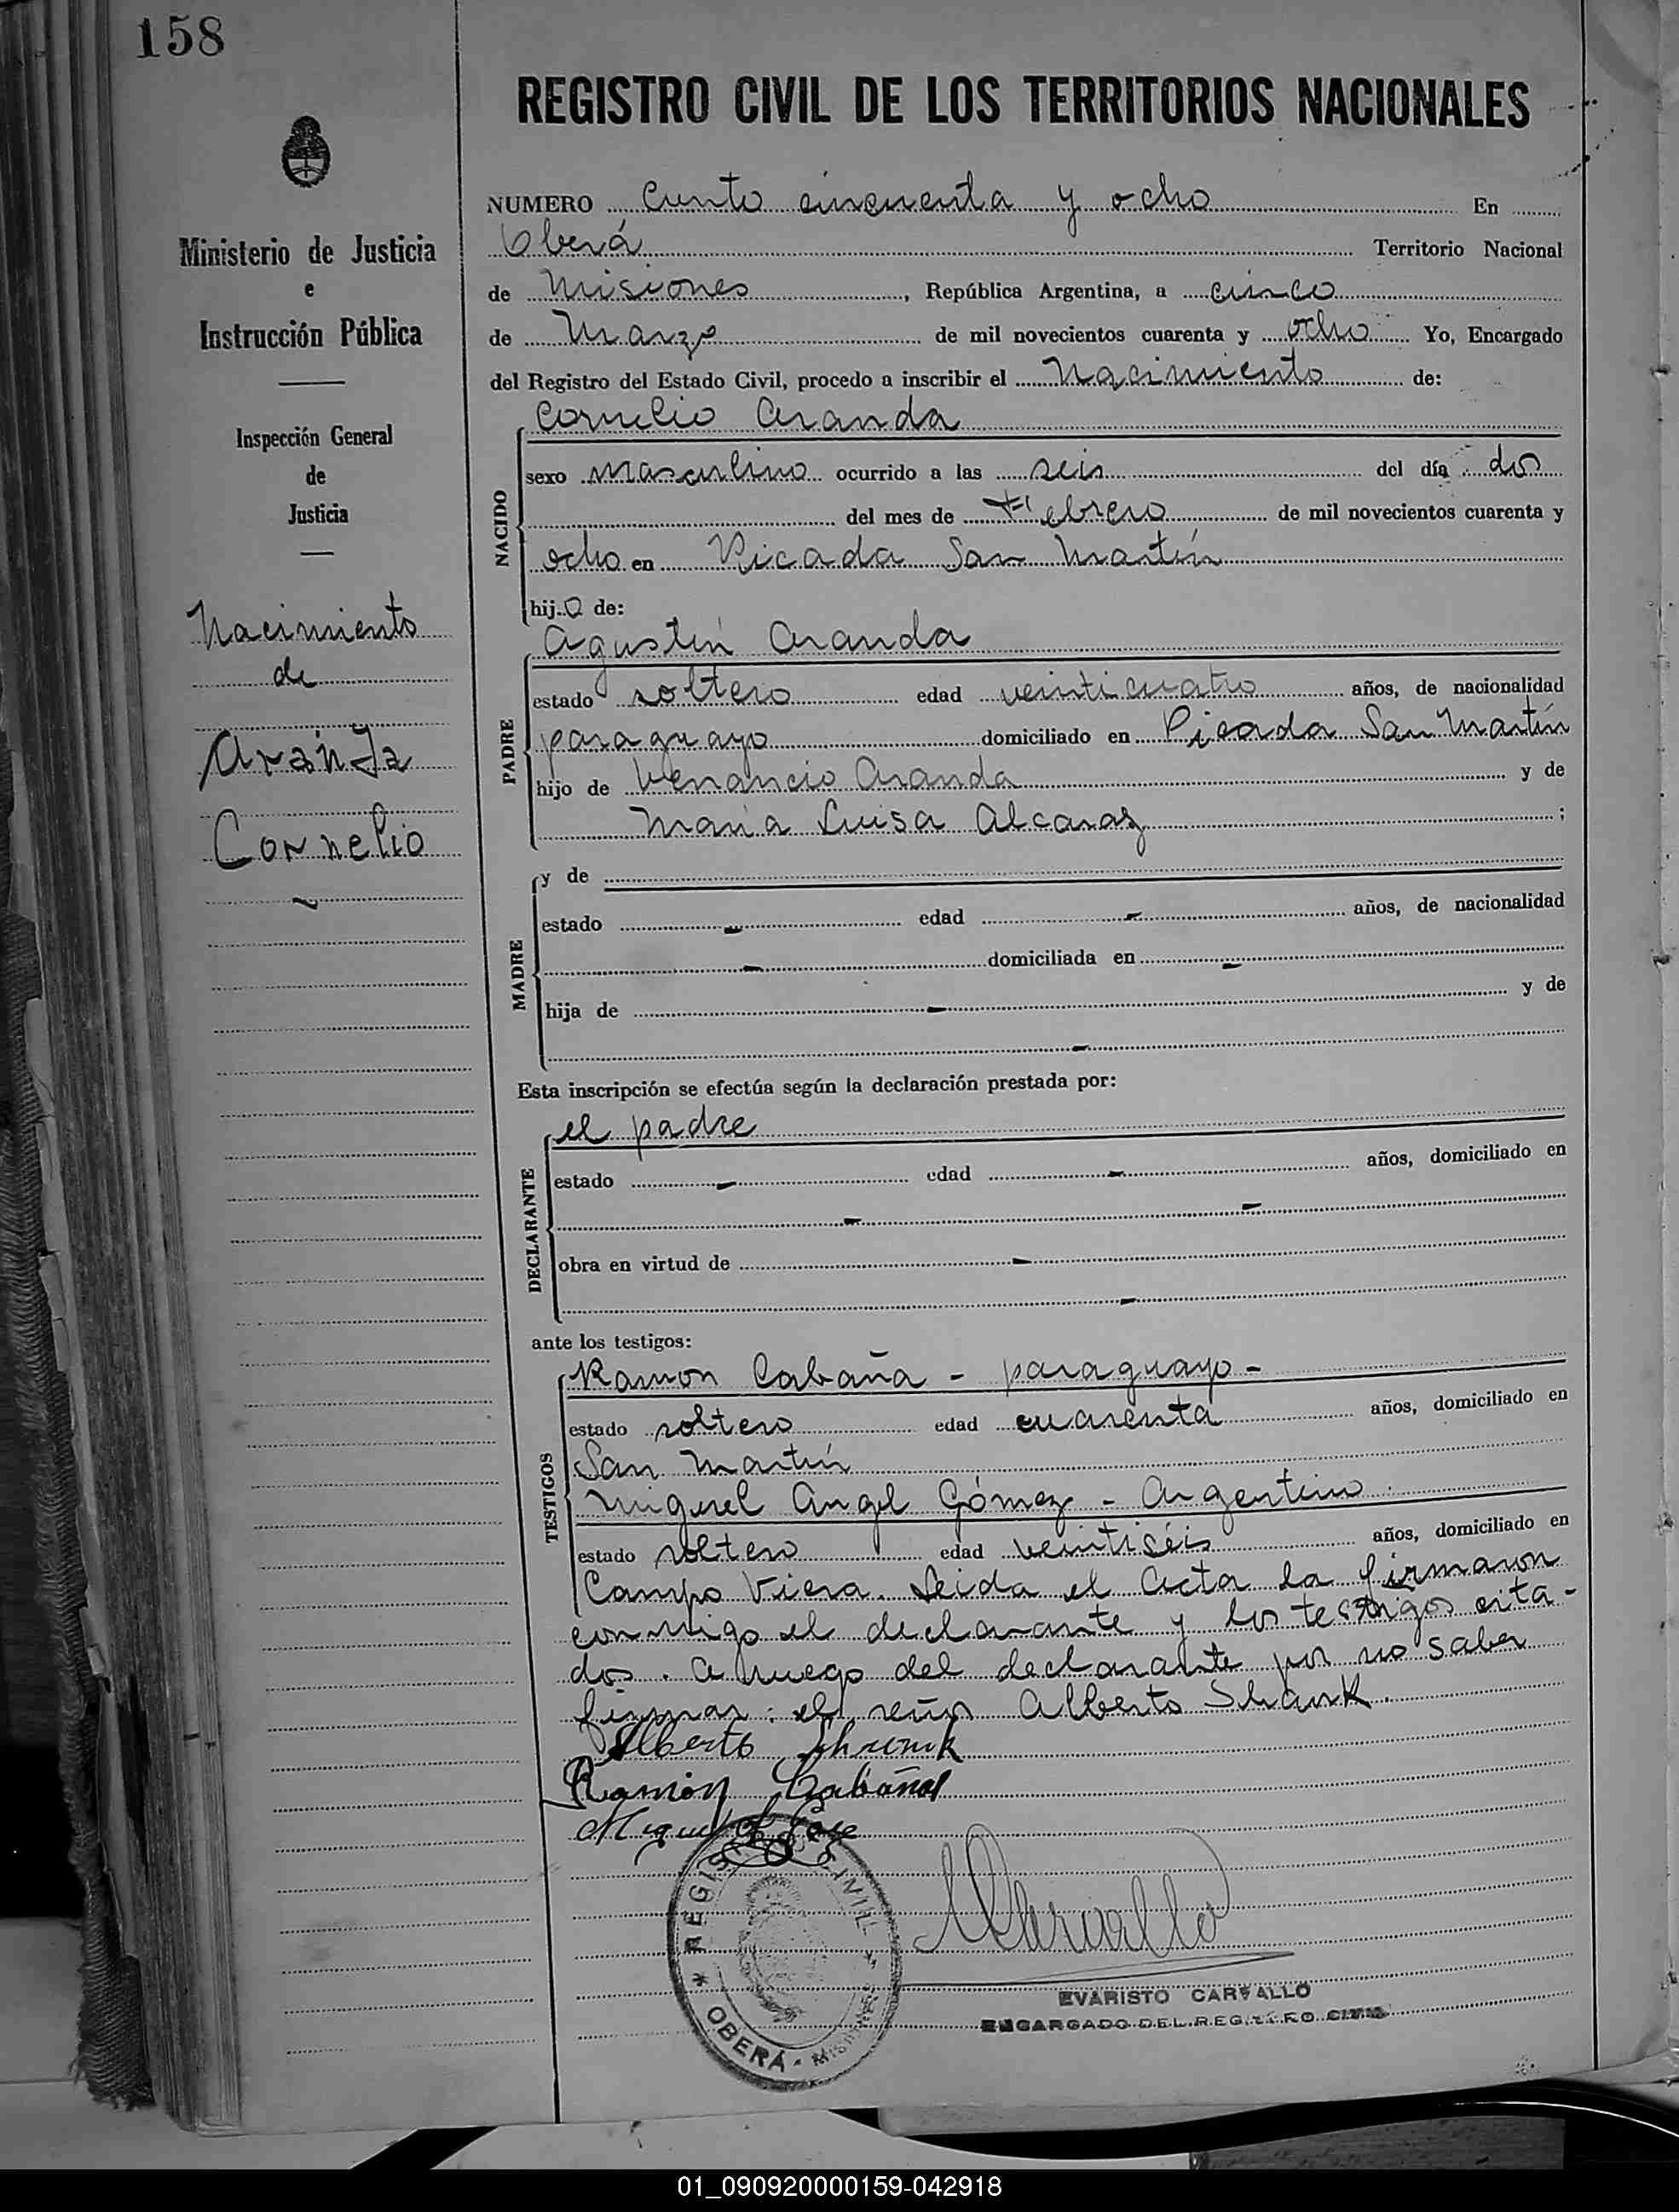 158
REGISTRO CIVIL DE LOS TERRITORIOS NACIONALES
Ministerio de Justicia
e
Instrucción Pública
Inspección General
de
Justicia
Nacimiento
de
Aranda
Cornelio
NUMERO Ciento cincuenta y ocho En
Oberá Territorio Nacional
de Misiones, República Argentina, a cinco
de Marzo de mil novecientos cuarenta y ocho Yo, Encargado
del Registro del Estado Civil, procedo a inscribir el Nacimiento de:
NACIDO
Cornelio Aranda
sexo masculino ocurrido a las seis del día dos
del mes de Febrero de mil novecientos cuarenta y
ocho en Picada San Martín
hijo de:
PADRE
Agustín Aranda
estado soltero edad veinticuatro años, de nacionalidad
paraguayo domiciliado en Picada San Martín
hijo de Venancio Aranda y de
María Luisa Alcaraz ;
MADRE
y de
estado - edad - años, de nacionalidad
- domiciliada en -
hija de - y de
-
Esta inscripción se efectúa según la declaración prestada por:
DECLARANTE
el padre
estado - edad - años, domiciliado en
- -
obra en virtud de -
-
ante los testigos:
TESTIGOS
Ramon Cabaña - paraguayo -
estado soltero edad cuarenta años, domiciliado en
San Martín
Miguel Angel Gómez - Argentino
estado soltero edad veintiséis años, domiciliado en
Campo Viera. Leida el Acta la firmaron
conmigo el declarante y los testigos cita-
dos. A ruego del declarante por no saber
firmar: el señor Alberto Shank.
Alberto
Ramón Cabaña
Miguel A
REGISTRO CIVIL
OBERÁ - Misiones
Carvallo
EVARISTO CARVALLO
ENCARGADO DEL REGISTRO CIVIL
01_090920000159-042918